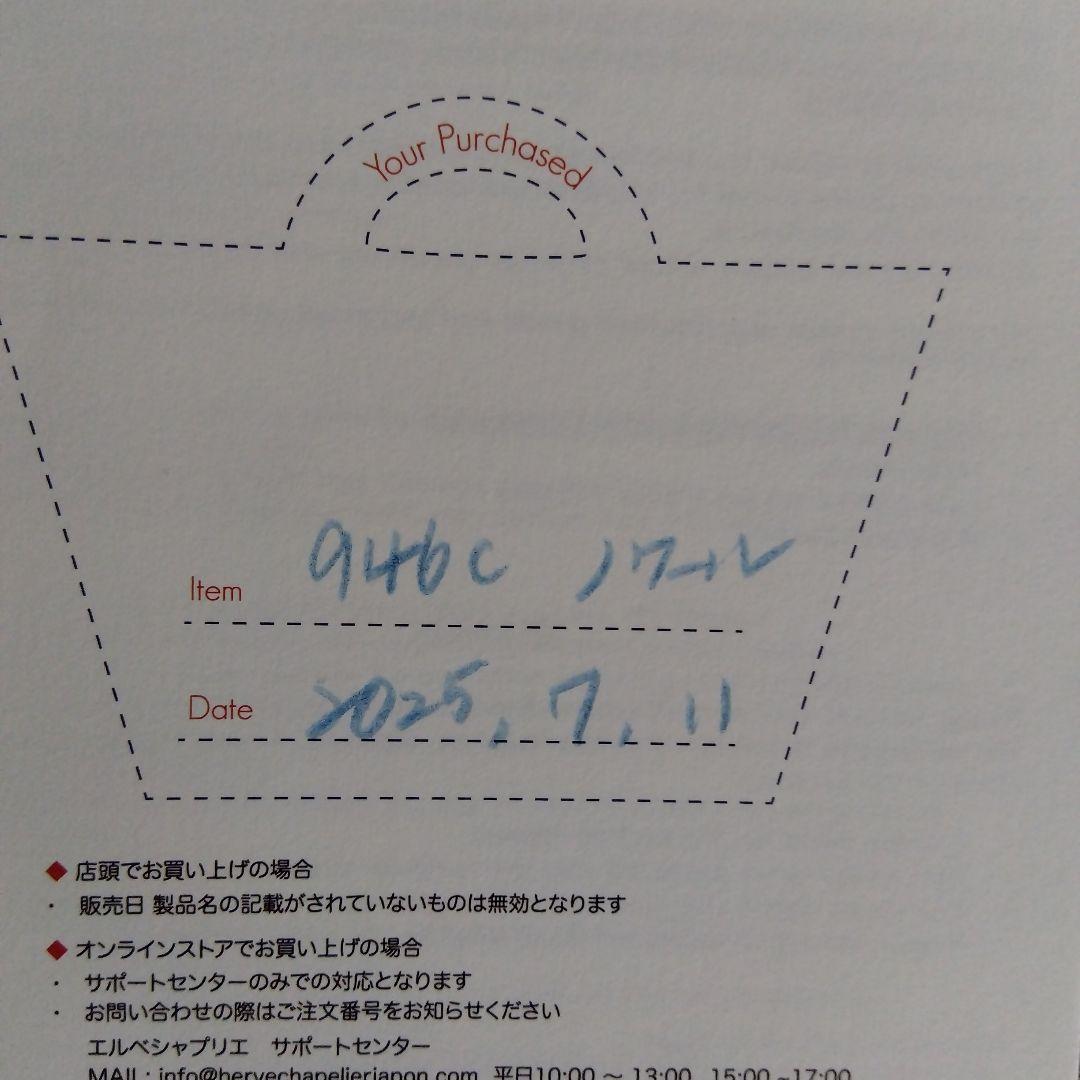 Your Purchased
Item 946C ノワール
Date 2025.7.11
◆ 店頭でお買い上げの場合
・ 販売日 製品名の記載がされていないものは無効となります
◆ オンラインストアでお買い上げの場合
・ サポートセンターのみでの対応となります
・ お問い合わせの際はご注文番号をお知らせください
エルベシャプリエ サポートセンター
MAIL : info@hervechapelierjapon.com 平日10:00 ~ 13:00 15:00 ~17:00